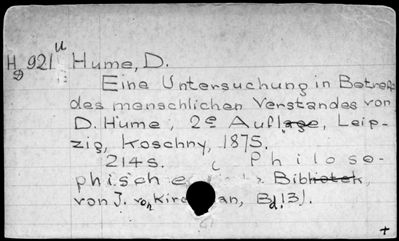 H 921 u Hume, D.
D
Eine Untersuchung in Betreff
des menschlichen Verstandes von
D. Hume, 2e Auflage, Leip-
zig, Koschny, 1875.
214s. ( Philoso-
phische Bibliotek,
von J. v. Kirchman, Bd. 13).
+